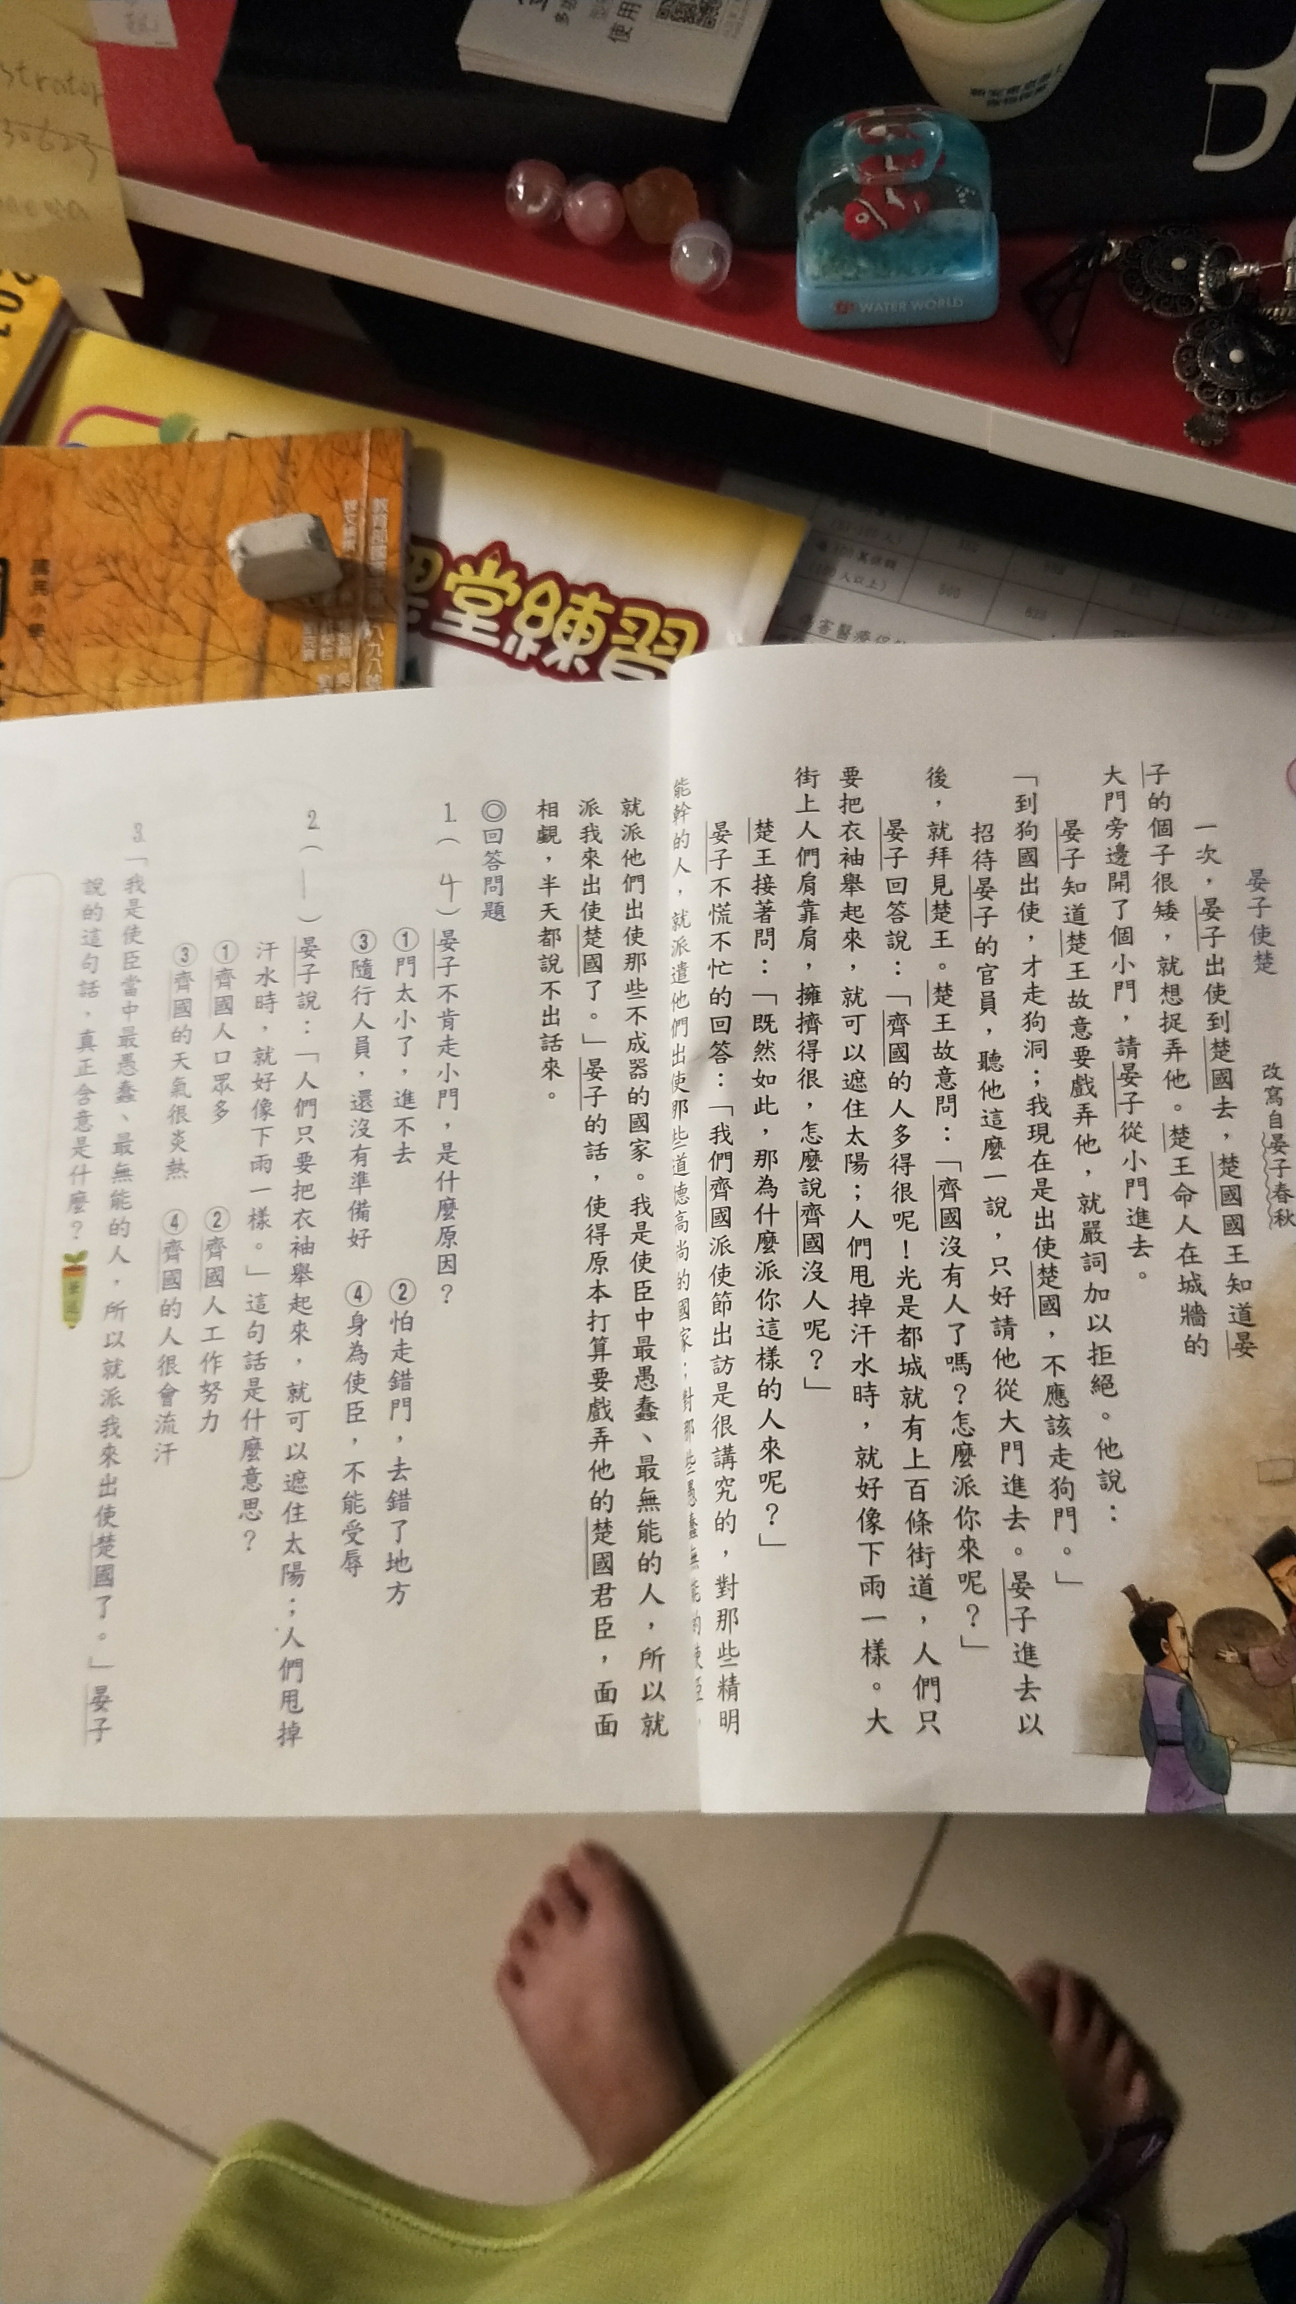 使用
WATER WORLD
堂練習
國民小學
晏子使楚
改寫自晏子春秋
一次，晏子出使到楚國去，楚國國王知道晏
子的個子很矮，就想捉弄他。楚王命人在城牆的
大門旁邊開了個小門，請晏子從小門進去。
晏子知道楚王故意要戲弄他，就嚴詞加以拒絕。他說：
「到狗國出使，才走狗洞；我現在是出使楚國，不應該走狗門。」
招待晏子的官員，聽他這麼一說，只好請他從大門進去。晏子進去以
後，就拜見楚王。楚王故意問：「齊國沒有人了嗎？怎麼派你來呢？」
晏子回答說：「齊國的人多得很呢！光是都城就有上百條街道，人們只
要把衣袖舉起來，就可以遮住太陽；人們甩掉汗水時，就好像下雨一樣。大
街上人們肩靠肩，擁擠得很，怎麼說齊國沒人呢？」
楚王接著問：「既然如此，那為什麼派你這樣的人來呢？」
晏子不慌不忙的回答：「我們齊國派使節出訪是很講究的，對那些精明
能幹的人，就派遣他們出使那些道德高尚的國家；對那些愚蠢無能的使臣，
就派他們出使那些不成器的國家。我是使臣中最愚蠢、最無能的人，所以就
派我來出使楚國了。」晏子的話，使得原本打算要戲弄他的楚國君臣，面面
相覷，半天都說不出話來。
◎回答問題
1.（4）晏子不肯走小門，是什麼原因？
①門太小了，進不去 ②怕走錯門，去錯了地方
③隨行人員，還沒有準備好 ④身為使臣，不能受辱
2.（1）晏子說：「人們只要把衣袖舉起來，就可以遮住太陽；人們甩掉
汗水時，就好像下雨一樣。」這句話是什麼意思？
①齊國人口眾多 ②齊國人工作努力
③齊國的天氣很炎熱 ④齊國的人很會流汗
3.「我是使臣當中最愚蠢、最無能的人，所以就派我來出使楚國了。」晏子
說的這句話，真正含意是什麼？